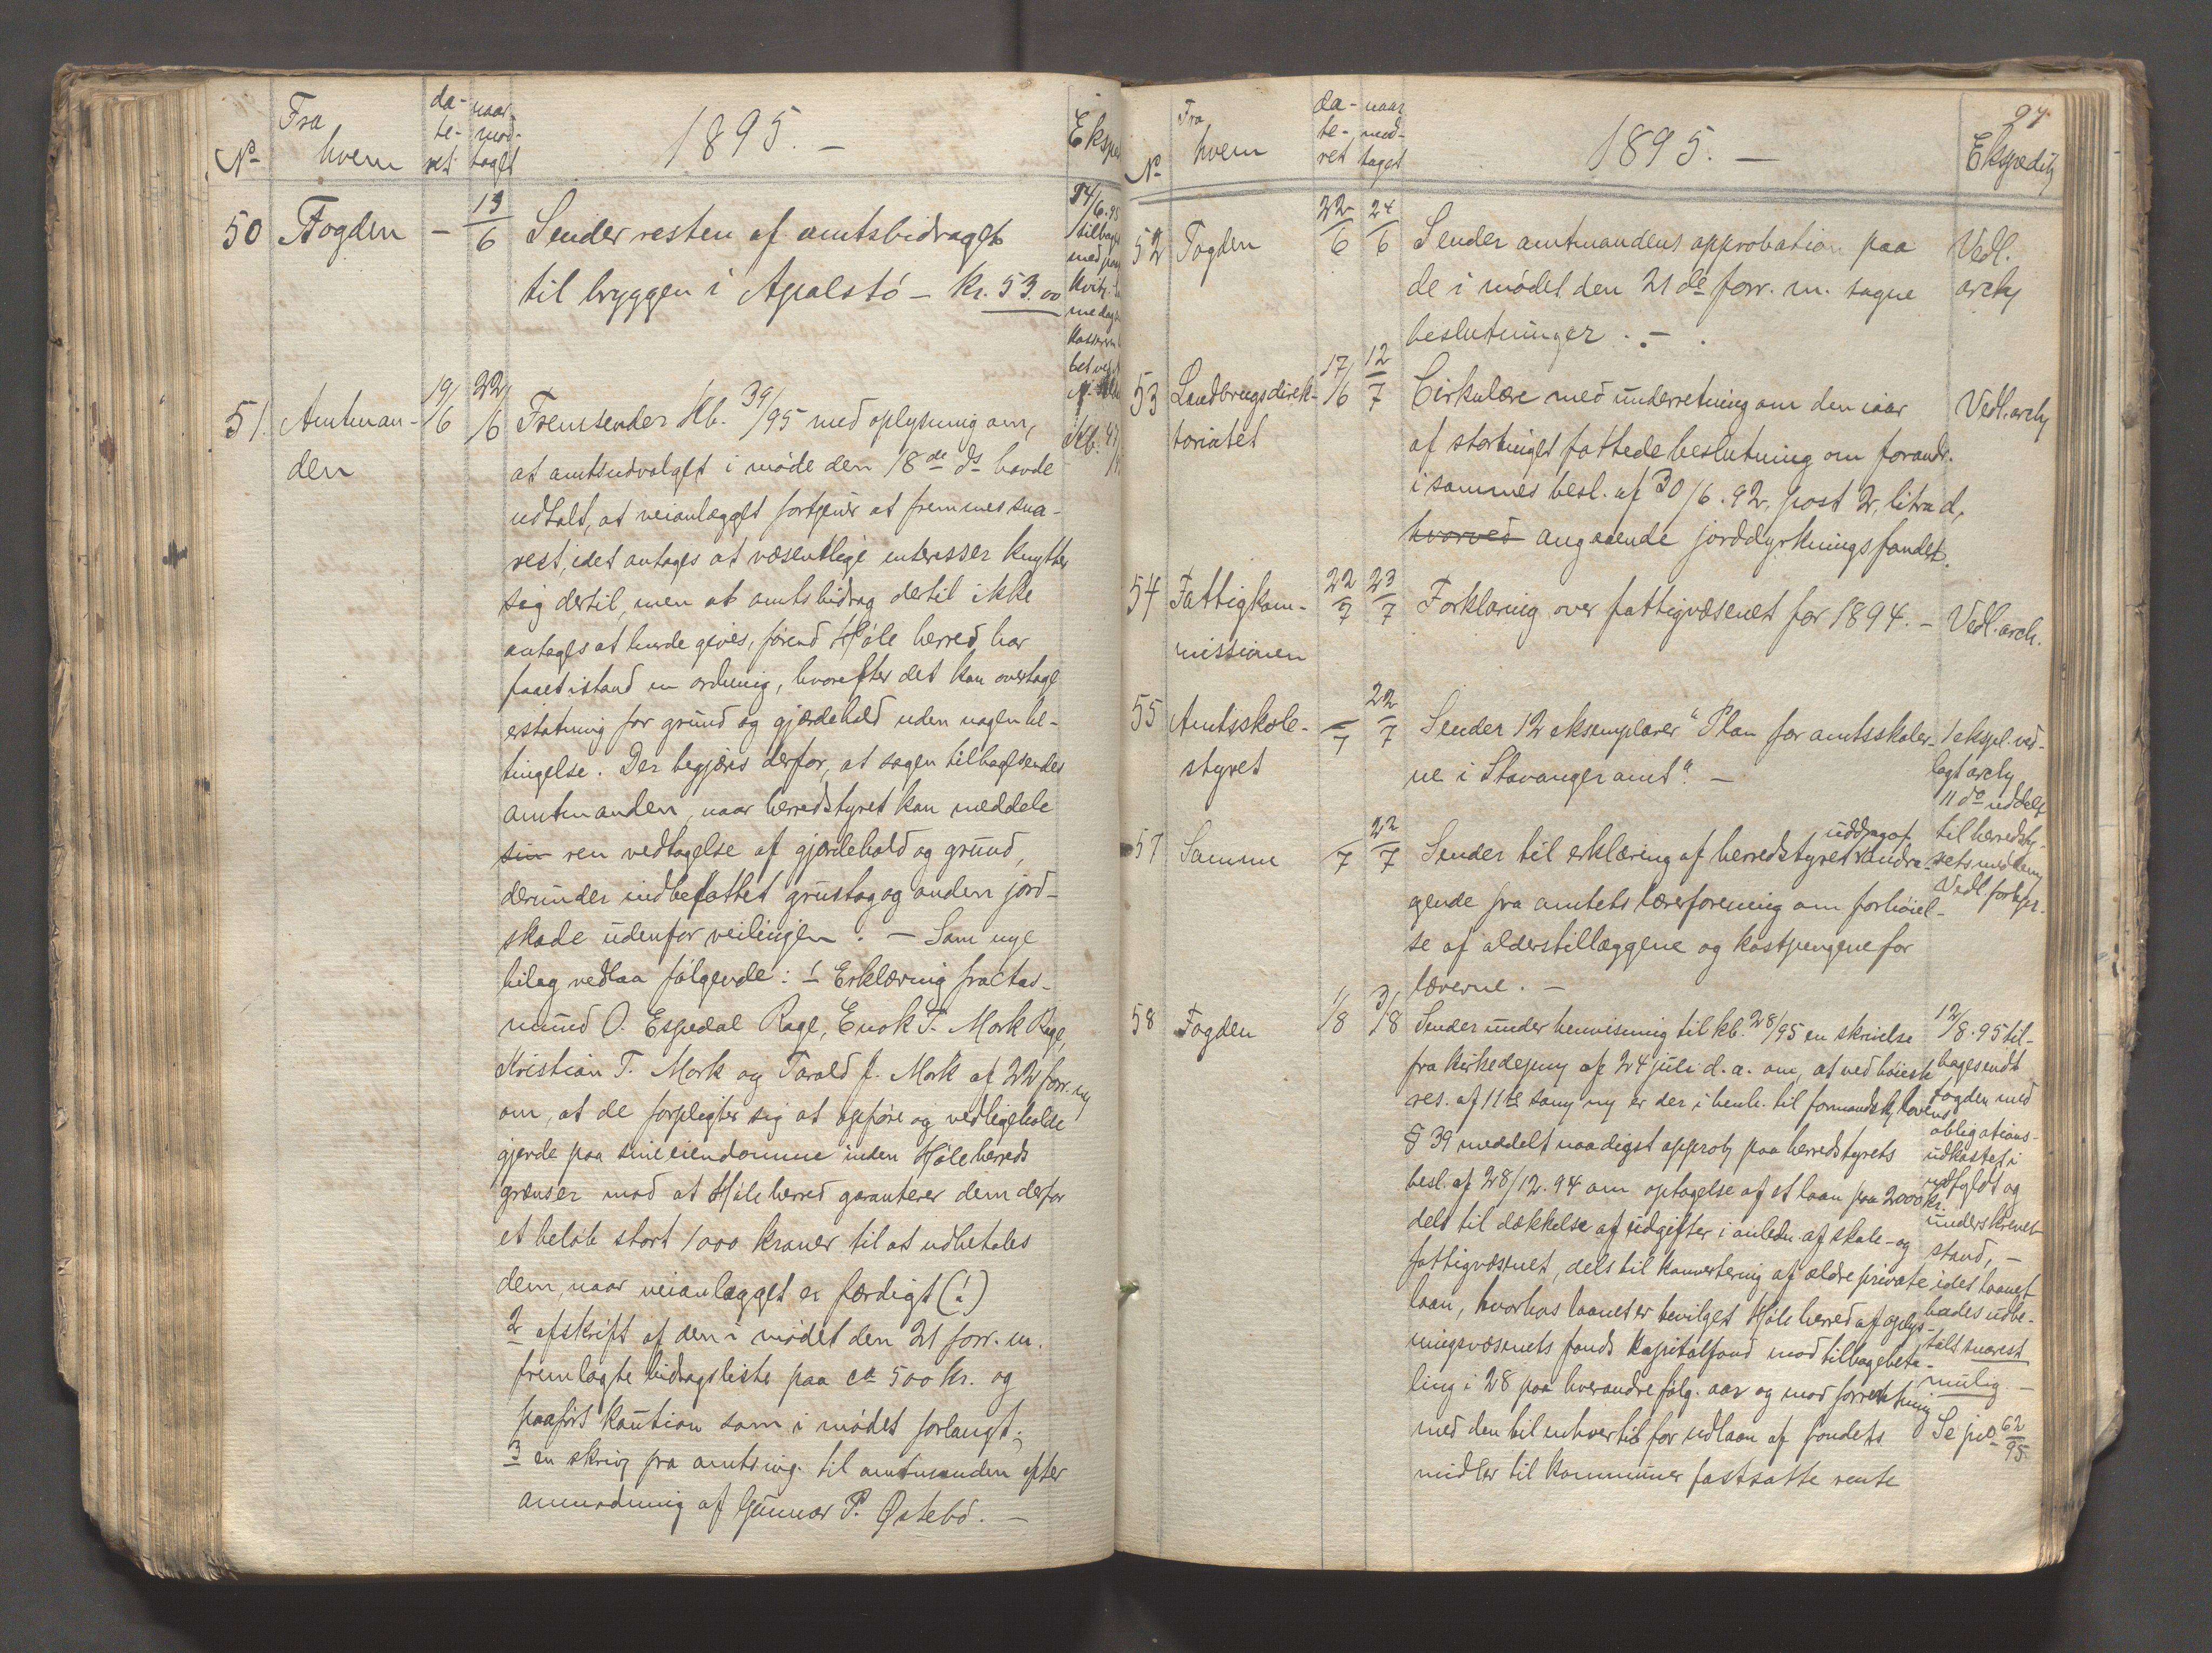 Fra hvem
da-te-ret
naar mod-taget
1895. —
Ekspe
No
50 Fogden — 13/6 Sender resten af amtsbidraget
til bryggen i Apalstø — Kr. 53.00
14/6.95
tilbages
med
kvitt.
51. Amtman-
den
19/6 22/6 Fremsender Kb. 39/95 med oplysning om,
at amtsudvalget i møde den 18de ds havde
udtalt, at veianlægget fortjener at fremmes sna-
rest, idet antages at væsentlige interesser knytter
sig dertil, men at amtsbidrag dertil ikke
antages at burde gives, førend Høle herred har
faaet istand en ordning, hvorefter det kan overtage
erstatning for grund og gjærdehold uden nogen be-
tingelse. Der begjæres derfor, at sagen tilbagesendes
amtmanden, naar herredstyret kan meddele
sin ren vedtagelse af gjerdehold og grund,
derunder indbefattet grustag og anden jord-
skade udenfor veilinjen. — Som nye
bilag vedlaa følgende: 1 Erklæring fra Aas-
mund O. Espedal Rage, Enok T. Mork Rage,
Kristian T. Mork og Tarald J. Mork af 22 forr. m
om, at de forpligter sig at opføre og vedligeholde
gjerde paa sine eiendomme inden Høle herreds
grænser mod at Høle herred garanterer dem derfor
et beløb stort 1000 kroner til at udbetales
dem, naar veianlægget er færdigt (!)
2 afskrift af den i mødet den 21 forr. m.
fremlagte bidragsliste paa ca 500 kr. og
paaført kaution som i mødet forlangt,
3 en skriv. fra amtsing. til amtmanden efter
anmodning af Gunnar P. Østebø. —
Fra hvem
da-te-ret
naar mod-taget
1895. —
97
Ekspedit
No
52 Fogden 22/6 24/6 Sender amtmandens approbation paa
de i mødet den 21de forr. m. tagne
beslutninger. —
Vedl.
arch
53 Landbrugsdirek-
toriatet
17/6 12/7 Cirkulære med underretning om den iaar
af stortinget fattede beslutning om forandr.
i sammes besl. af 30/6.92, post 2, litra d,
hvorved angaaende jorddyrkningsfondet.
Vedl. arch
54 Fattigkom-
missionen
22/7 23/7 Forklaring over fattigvæsenet for 1894. —
Vedl. arch.
55 Amtsskole-
styret
–/7 22/7 Sender 12 eksemplarer "Plan for amtsskoler-
ne i Stavanger amt". —
1 ekspl. ved-
lagt arch
11 do uddelt
til herredsty-
rets medlem
57 Samme –/7 22/7 Sender til erklæring af herredstyret uddrag af andra-
gende fra amtets lærerforening om forhøiel-
se af alderstillæggene og kostpengene for
lærerne. —
Vedl. forhor.
58 Fogden 1/8 3/8 Sender under henvisning til kb. 28/95 en skrivelse
fra kirkedepmg af 24 juli d.a. om, at ved høieste
res. af 11te samm er der i henh. til formandsk. lovens
§ 39 meddelt naadigst approb paa herredstyrets
besl. af 28/12.94 om optagelse af et laan paa 2000 kr.
dels til dækkelse af udgifter i anledn. af skole- og
fattigvæsenet, dels til konvertering af ældre private
laan, hvorhos laanet er bevilget Høle herred af oplys-
ningsvæsenets fonds kapitalfond mod tilbagebeta-
ling i 28 paa hverandre følg. aar og mod forrentning
med den til enhver tid for udlaan af fondets
midler til kommuner fastsatte rente
12/8.95 til-
bagesendt
fogden med
obligations-
udkastet i
udfyldt og
underskrevet
stand, —
idet laanet
bades udbe-
talt snarest
mulig. —
Se jno 62/95